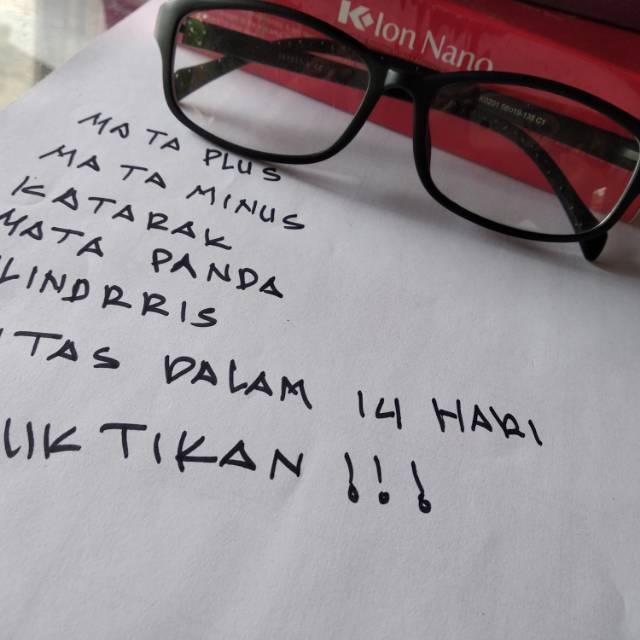 K-Ion Nano
MATA PLUS
MATA MINUS
KATARAK
MATA PANDA
LINDRRIS
TAS DALAM 14 HARI
UKTIKAN !!!